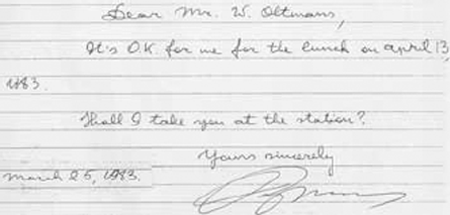 Dear Mr. W. Oltmans,
It's O.K. for me for the lunch on april 13,
1983.
Shall I take you at the station?
Yours sincerely
March 25, 1983.